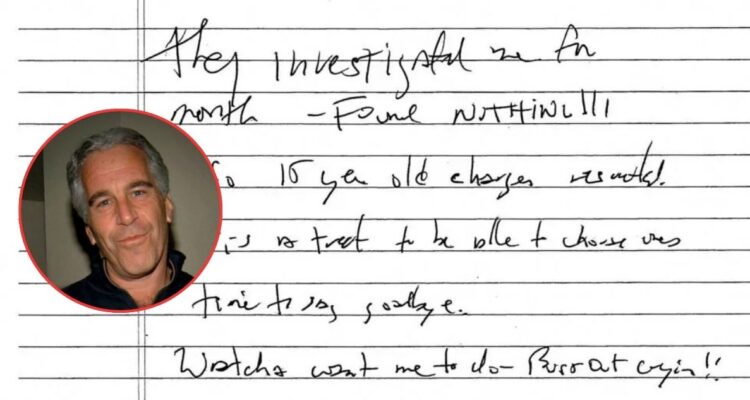 They investigated me for
month - Found NOTHING!!!
15 year old charges resulted.
is a treat to be able to choose ones
time to say goodbye.
Watcha want me to do - Burst out cryin!!